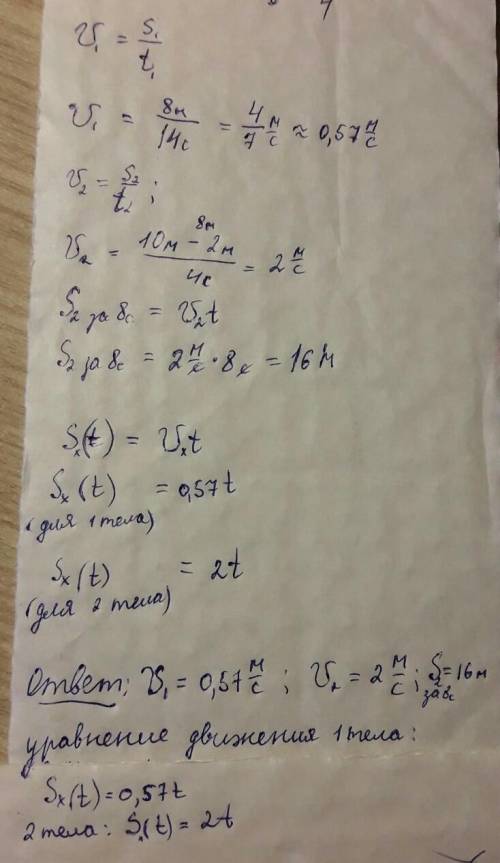 V₁ = S₁/t₁
V₁ = 8м/14с = 4/7 м/с ≈ 0,57 м/с
V₂ = S₂/t₂ ;
8м
V₂ = 10м - 2м/4с = 2 м/с
S₂ за 8с = V₂t
S₂ за 8с = 2 м/с · 8с = 16м
Sₓ(t) = Vₓt
Sₓ(t) = 0,57t
(для 1 тела)
Sₓ(t) = 2t
(для 2 тела)
Ответ: V₁ = 0,57 м/с ; V₂ = 2 м/с ; S₂ = 16м
за 8с
уравнение движения 1 тела:
Sₓ(t) = 0,57t
2 тела: Sₓ(t) = 2t